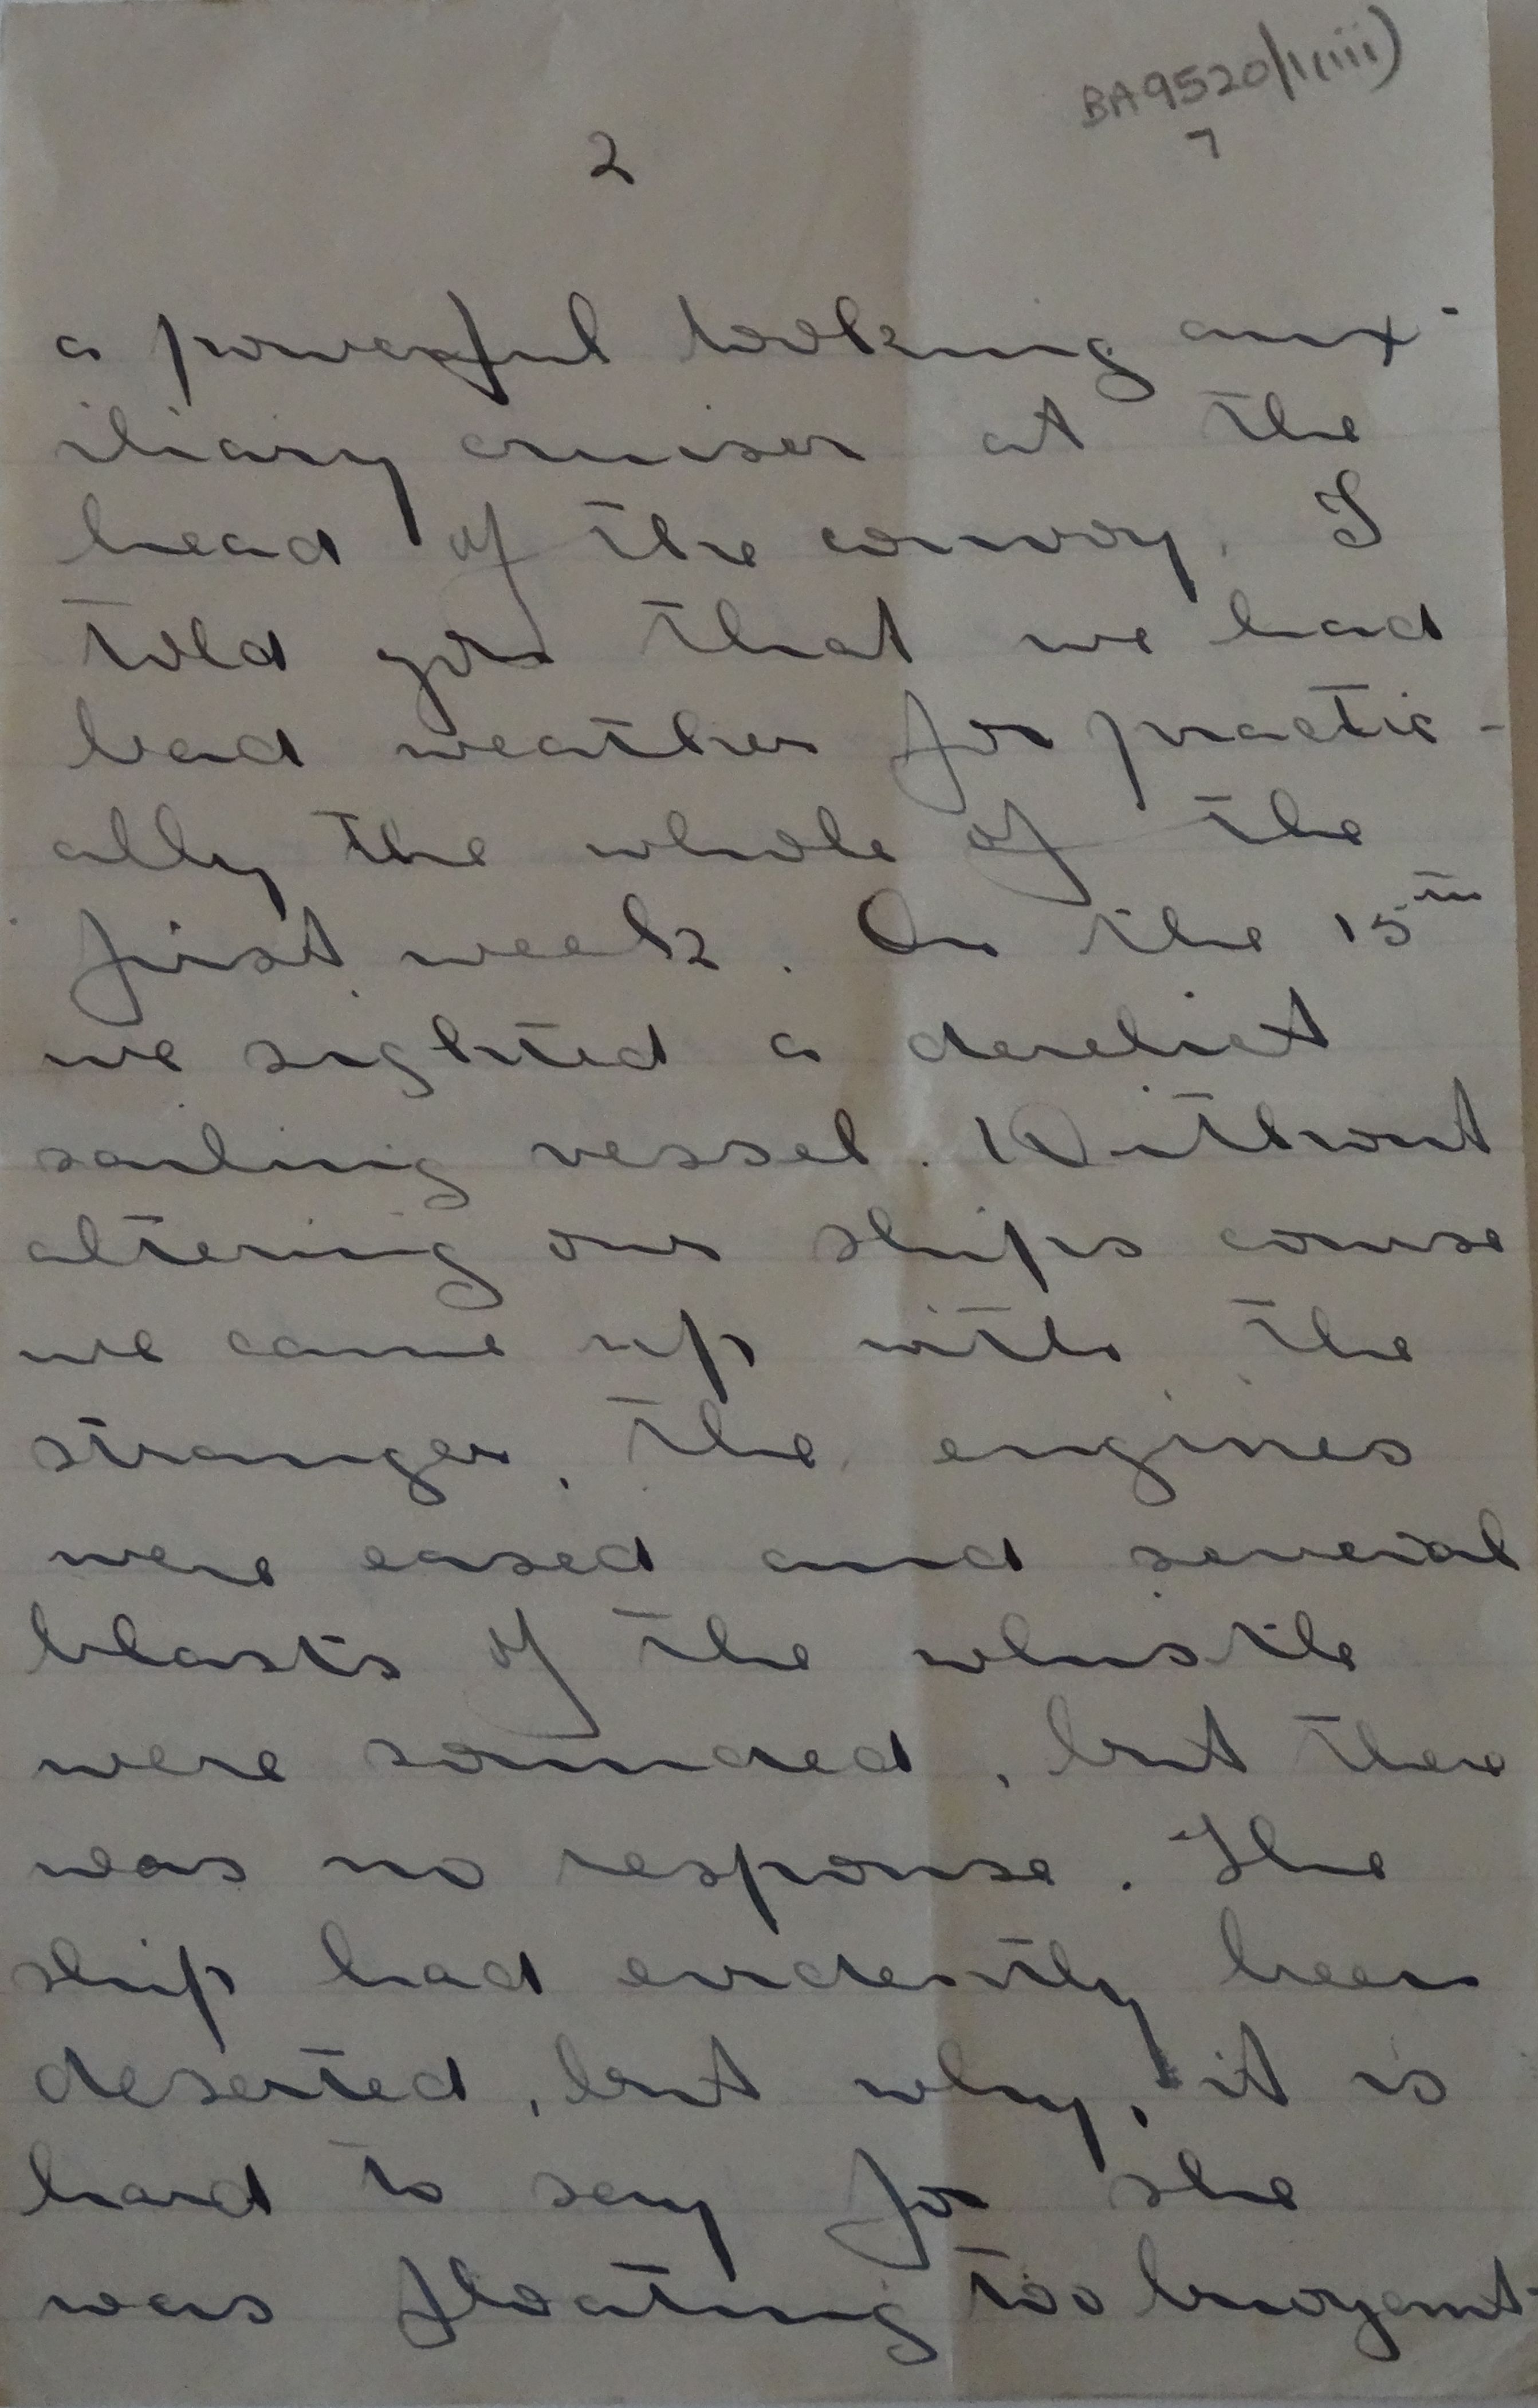 BA9520/1(iii)
7
2
a powerful looking aux-
iliary cruiser at the
head of the convoy. I
told you that we had
bad weather for practic-
ally the whole of the
first week. On the 15th
we sighted a derelict
sailing vessel. Without
altering our ships course
we came up with the
stranger, the engines
were eased and several
blasts of the whistle
were sounded, but there
was no response. The
ship had evidently been
deserted, but why, it is
hard to say for she
was floating too buoyant-